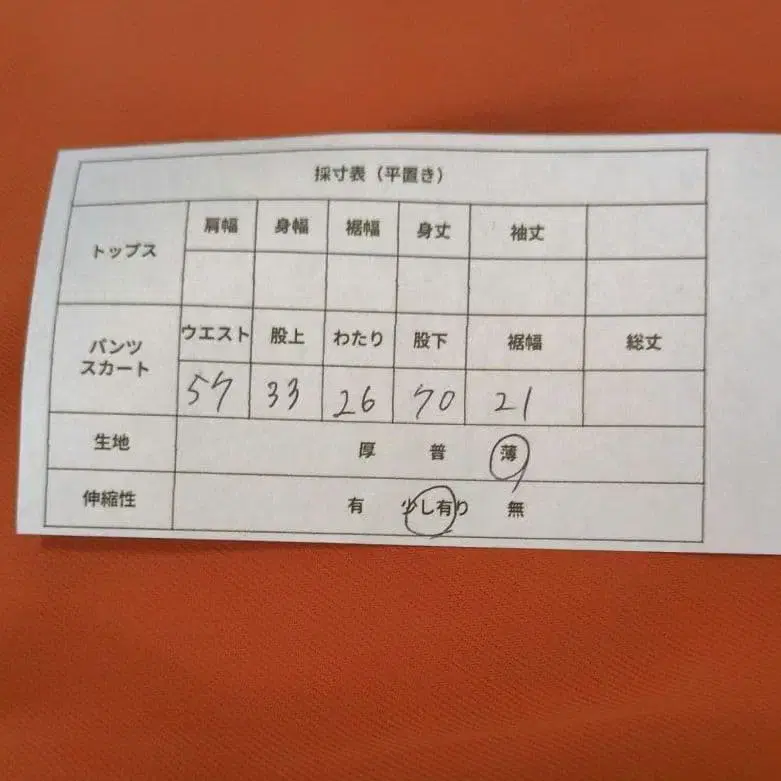 採寸表（平置き）
トップス 肩幅 身幅 裾幅 身丈 袖丈
パンツ スカート ウエスト 股上 わたり 股下 裾幅 総丈
57 33 26 70 21
生地 厚 普 薄
伸縮性 有 少し有り 無